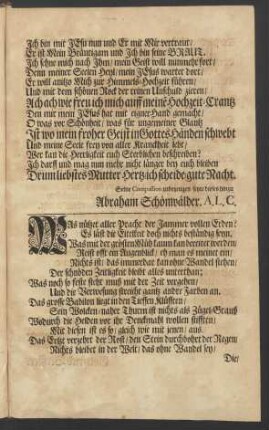 Ich bin mit JEsu nun und Er mit Mir vertraut/
Er ist Mein Bräutigam und Ich bin seine BRAUT.
Ich sehne mich nach Ihm/ mein Geist will nunmehr fort/
Denn meiner Seelen Heyl/ mein JEsus wartet dort/
Er will anitzo Mich zur Himmels-Hochzeit führen/
Und mit dem schönen Rock der reinen Unschuld zieren/
Ach ach wie freu ich mich auff meine Hochzeit-Crantz
Den mir mein JEsus hat mit eigner Hand gemacht!
O was vor Schönheit/ was für ungemeiner Glantz
Ist wo mein froher Geist in Gottes Händen schwebt
Und meine Seele frey von aller Kranckheit lebt/
Wer kan die Herrligkeit euch Sterblichen beschreiben?
Ich darff und mag nun mehr nicht länger bey euch bleiben
Drum liebstes Mutter-Hertz ich scheide gute Nacht.
Abraham Schönwälder, A. L. C.
WAs nützet aller Pracht der Jammer vollen Erden?
Es läst die Eitelkeit doch nichts beständig seyn.
Was mit der grösten Müh kaum kan bereitet werden
Reist offt ein Augenblick/ eh man es meinet ein/
Nichts ist/ das immerdar kan ohne Wandel stehen/
Der schnöden Zeitligkeit bleibt alles unterthan;
Was noch so feste steht muß mit der Zeit vergehen/
Und die Verwesung streicht gantz andre Farben an.
Das grosse Babilon liegt in den Tieffen Klüfften/
Sein Wolcken-naher Thurm ist nichts als
Wodurch die Helden vor ihr Denckmahl wollen stifften;
Mit diesen ist es so/ gleich wie mit jenen/ aus.
Das Ertzt verzehrt der Rost/ den Stein durchbohrt der Regen
Nichts bleibet in der Welt/ das ohne Wandel sey/
Die